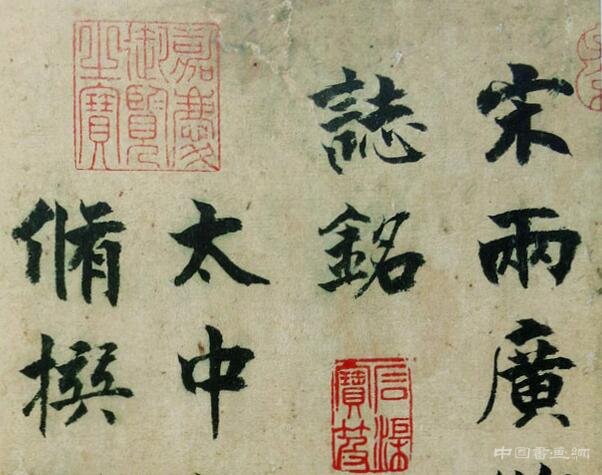 宋兩廣
誌銘
太中
脩撰
嘉慶御覽之寶
中国書画網